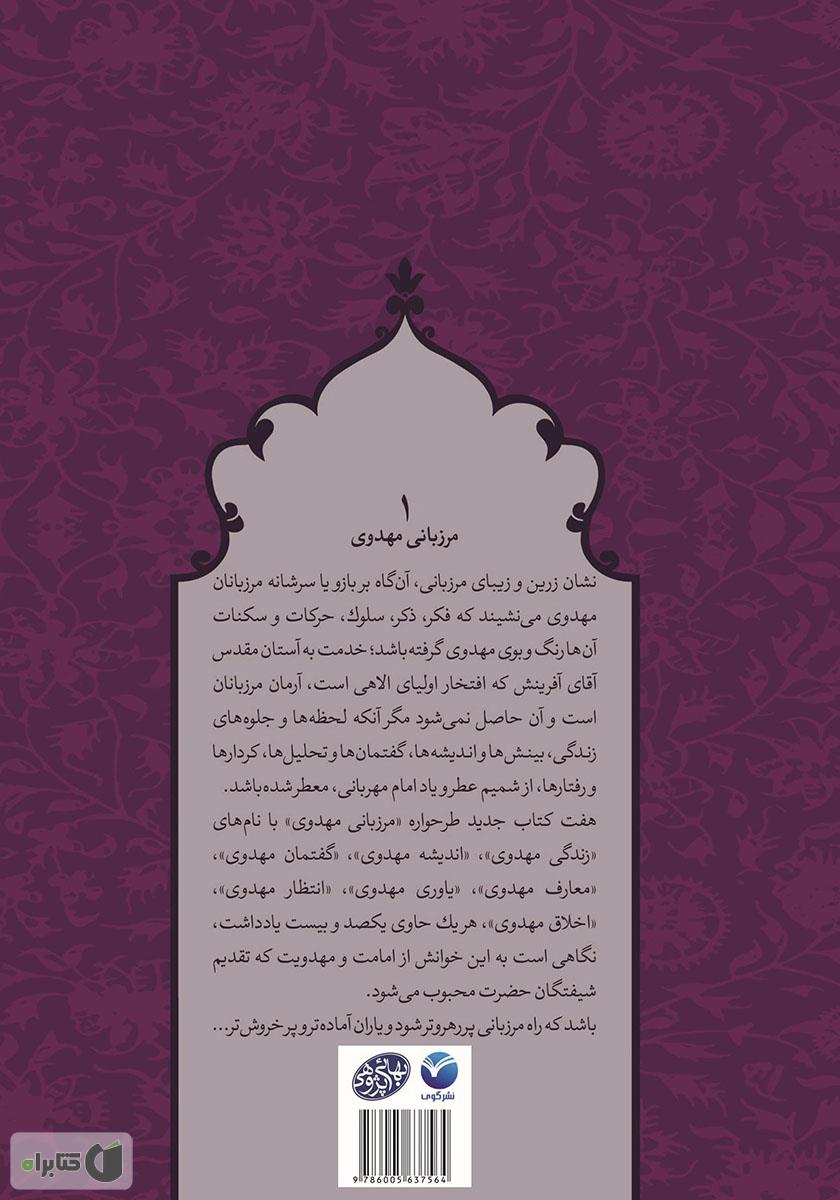 ۱
مرزبانی مهدوی
نشان زرین و زیبای مرزبانی، آن‌گاه بر بازو یا سرشانه مرزبانان
مهدوی می‌نشیند که فکر، ذکر، سلوك، حرکات و سکنات
آن‌ها رنگ و بوی مهدوی گرفته باشد؛ خدمت به آستان مقدس
آقای آفرینش که افتخار اولیای الاهی است، آرمان مرزبانان
است و آن حاصل نمی‌شود مگر آنکه لحظه‌ها و جلوه‌های
زندگی، بینش‌ها و اندیشه‌ها، گفتمان‌ها و تحلیل‌ها، کردارها
و رفتارها، از شمیم عطر و یاد امام مهربانی، معطر شده باشد.
هفت کتاب جدید طرحواره «مرزبانی مهدوی» با نام‌های
«زندگی مهدوی»، «اندیشه مهدوی»، «گفتمان مهدوی»،
«معارف مهدوی»، «یاوری مهدوی»، «انتظار مهدوی»،
«اخلاق مهدوی»، هر یك حاوی یکصد و بیست یادداشت،
نگاهی است به این خوانش از امامت و مهدویت که تقدیم
شیفتگان حضرت محبوب می‌شود.
باشد که راه مرزبانی پر رهروتر شود و یاران آماده‌تر و پر خروش‌تر...
بهائی پژوهی
نشر گوی
9 786005 637564
کتابراه